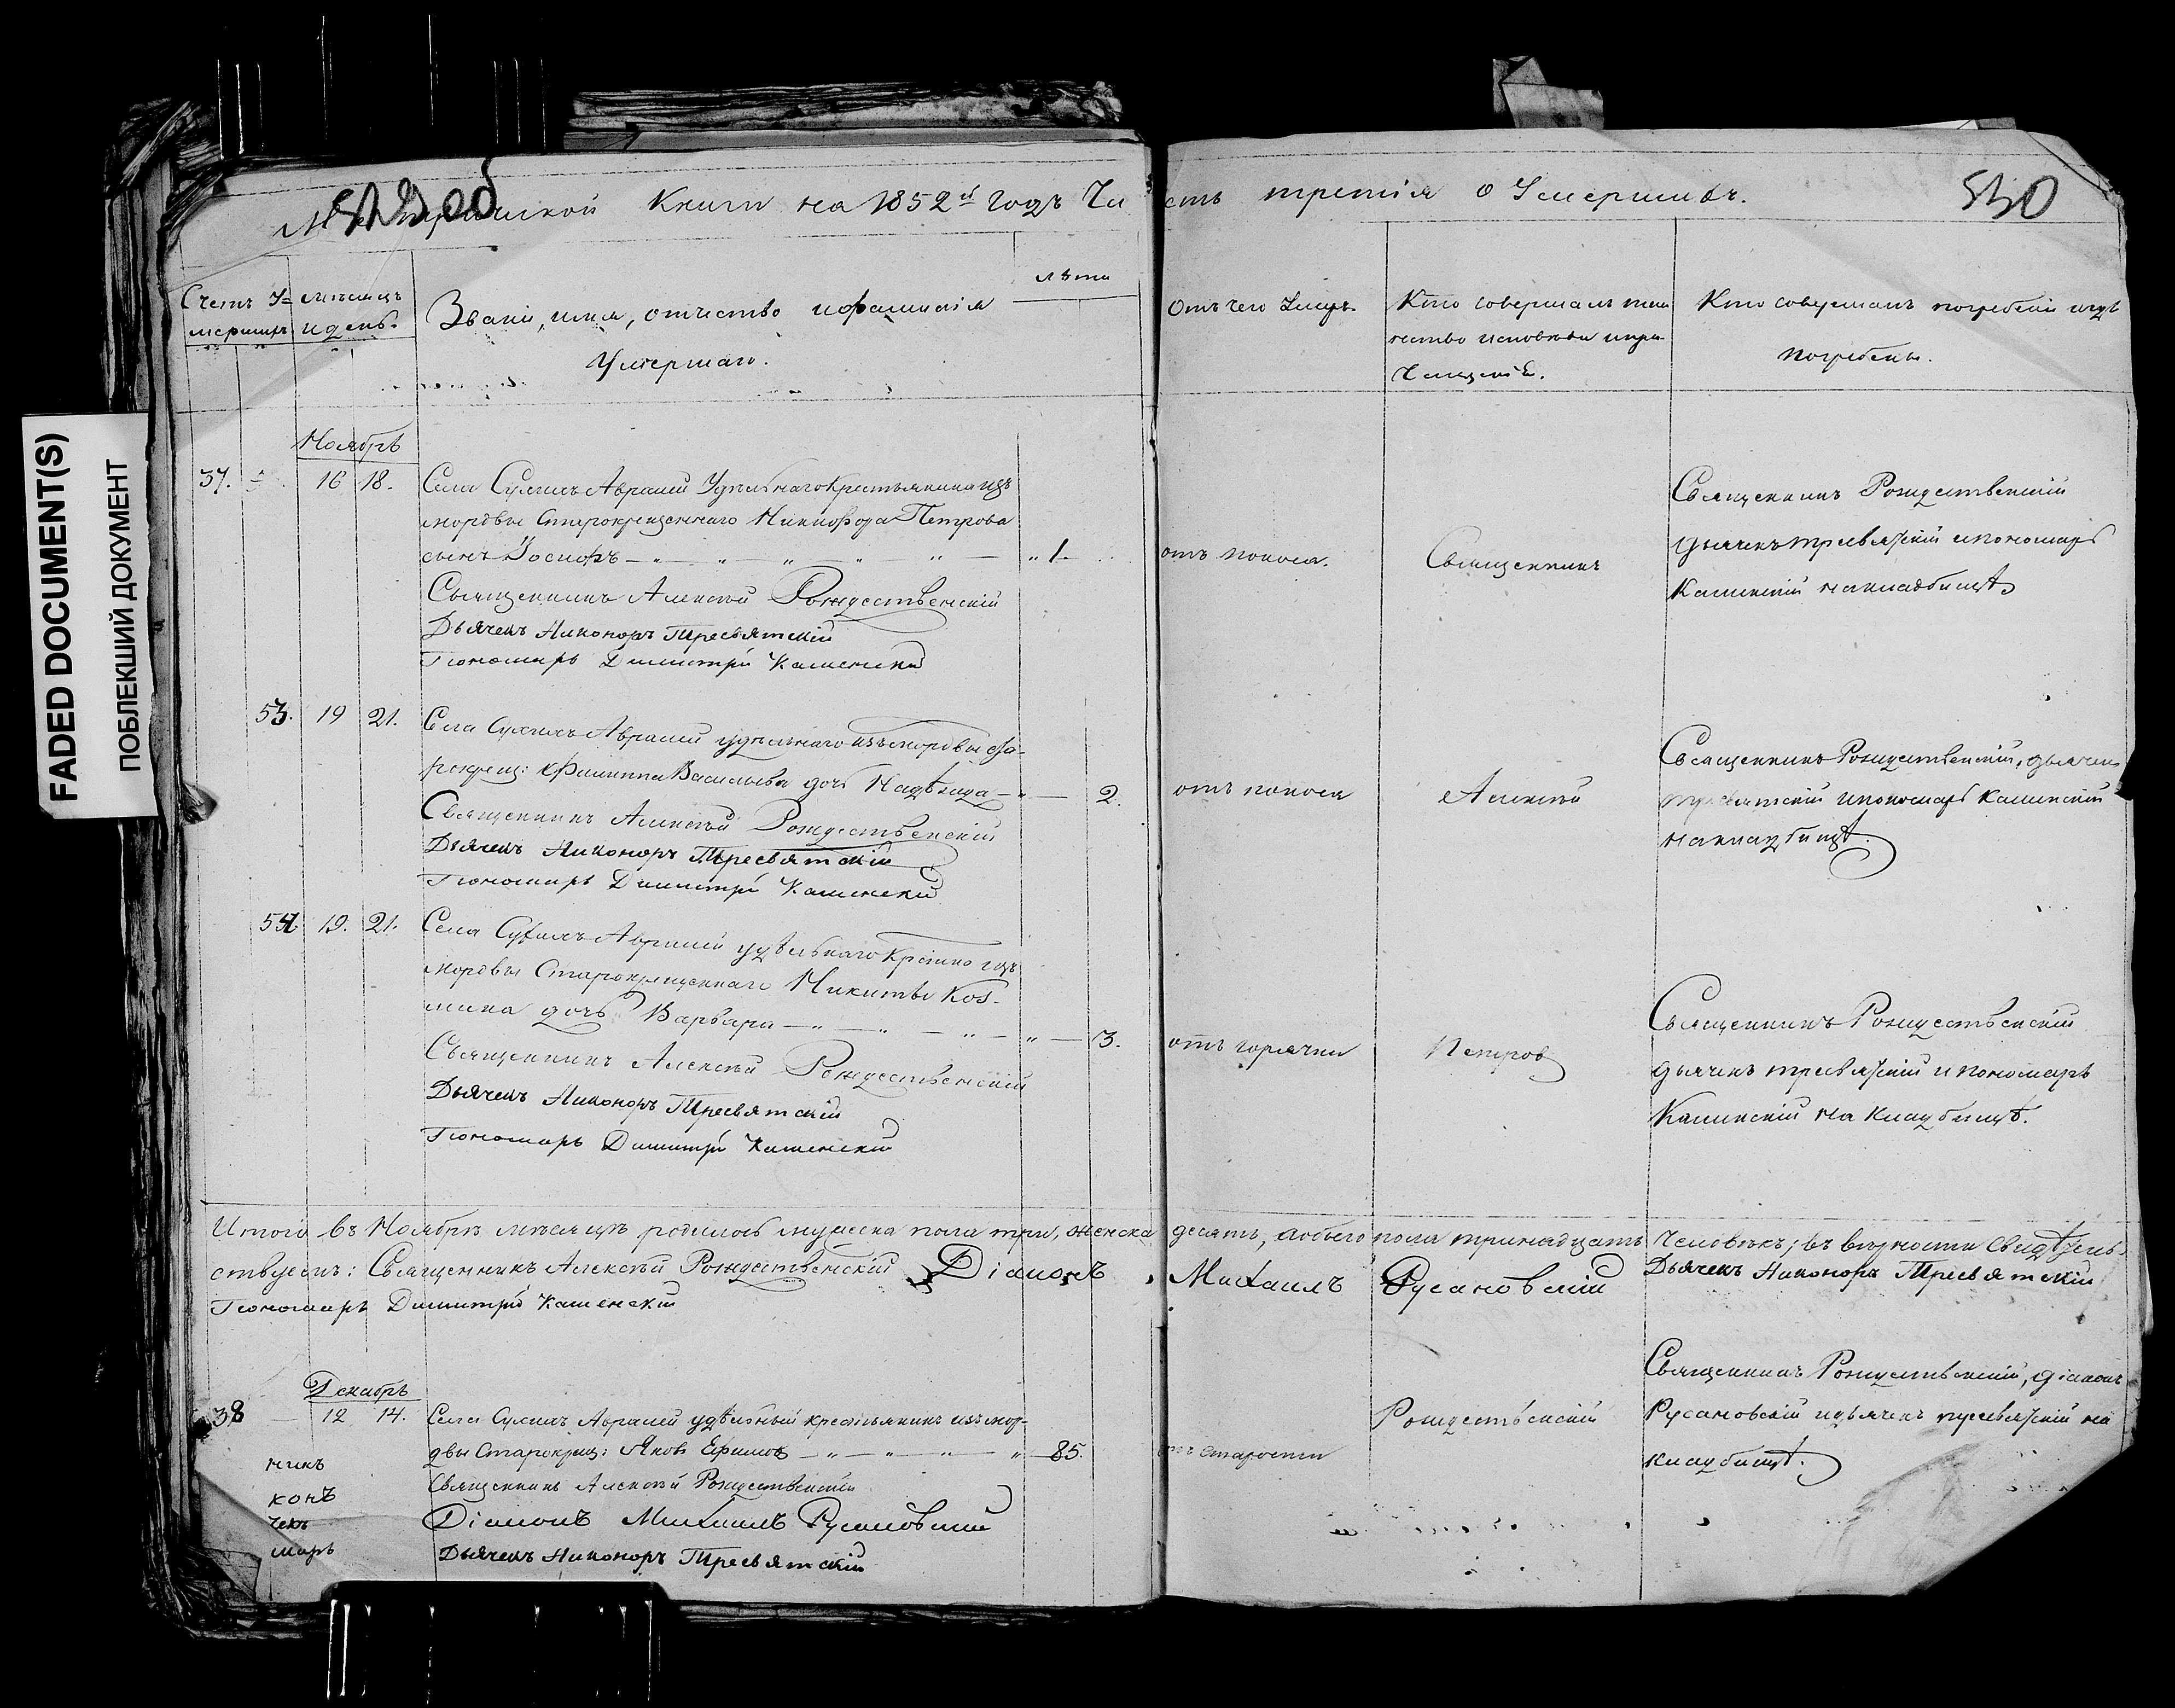 FADED DOCUMENT(S)
ПОБЛЕКШИЙ ДОКУМЕНТ
Метрической Книги на 1852й годъ Часть третія о Умершихъ.
530
Счетъ У-
мершихъ
мѣсяцъ
и день.
Званіе, имя, отчество и фамилія
Умершаго.
лѣта
Отъ чего Умеръ.
Кто совершалъ таин
ство исповѣди и при
Кто совершалъ погребеніе и гдѣ
погребены.
Ноябрь
37. 16 18.
Села Сухихъ Авралей Удѣльнаго Крестьянина изъ
мордвы Старокрещеннаго Никифора Петрова
сынъ Іосифъ 1.
отъ поноса.
Священникъ
Священникъ Рождественскій
дьячекъ Тресвятскій и пономарь
Каменскій на кладбищѣ
Священникъ Алексѣй Рождественскій
Дьячекъ Никоноръ Тресвятскій
Пономарь Димитрій Каменскій
53. 19 21.
Села Сухихъ Авралей удѣльнаго изъ мордвы ста-
рокрещ: Филиппа Васильева дочь Надѣжда 2.
отъ поноса
Алексѣй
Священникъ Рождественскій, дьячекъ
Тресвятскій и пономарь Каменскій
на кладбищѣ.
Священникъ Алексѣй Рождественскій
Дьячекъ Никоноръ Тресвятскій
Пономарь Димитрій Каменскій
54 19. 21.
Села Сухихъ Авралей удѣльнаго Крстьянина изъ
мордвы Старокрещеннаго Никиты Коз-
мина дочь Варвара 3.
отъ горячки
Петровъ
Священникъ Рождественскій
дьячекъ Тресвятскій и пономарь
Каменскій на кладбищѣ.
Священникъ Алексѣй Рождественскій
Дьячекъ Никоноръ Тресвятскій
Пономарь Димитрій Каменскій
Итого въ Ноябрѣ мѣсяцѣ родилось мужеска пола три, женска десять, обоего пола тринадцать Человѣкъ; въ вѣрности свидѣтель-
ствуемъ: Священникъ Алексѣй Рождественскій Діаконъ Михаилъ Русановскій Дьячекъ Никоноръ Тресвятскій
Пономарь Димитрій Каменскій
Декабрь
38 12 14.
Села Сухихъ Авралей удѣльный крестьянинъ изъ мор-
двы Старокрещ: Яковъ Ефимовъ 85.
отъ старости
Рождественскій
Священникъ Рождественскій, діаконъ
Русановскій и дьячекъ Тресвятскій на
кладбищѣ.
Священникъ Алексѣй Рождественскій
Діаконъ Михаилъ Русановскій
Дьячекъ Никоноръ Тресвятскій
никъ
конъ
чекъ
марь